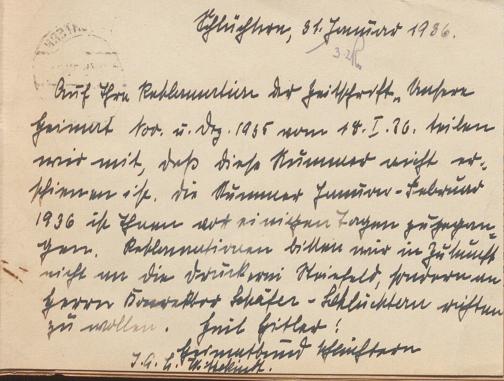 Schlüchtern, 31. Januar 1936.
Auf Ihre Reklamation der Zeitschrift „Unsere
Heimat Nov. u. Dez. 1935 vom 18. I. 36. teilen
wir mit, daß diese Nummer nicht er-
schienen ist. Die Nummer Januar-Februar
1936 ist Ihnen vor einigen Tagen zugegan-
gen. Reklamationen bitten wir in Zukunft
nicht an die Druckerei Steinfeld, sondern an
Herrn Konrektor Schäfer-Schlüchtern richten
zu wollen. Heil Hitler!
Heimatbund Schlüchtern
I. A.